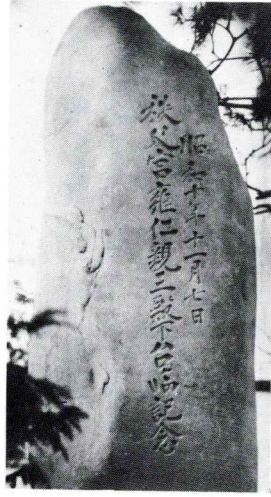 昭和十年十一月七日
秩父宮雍仁親王殿下台臨記念